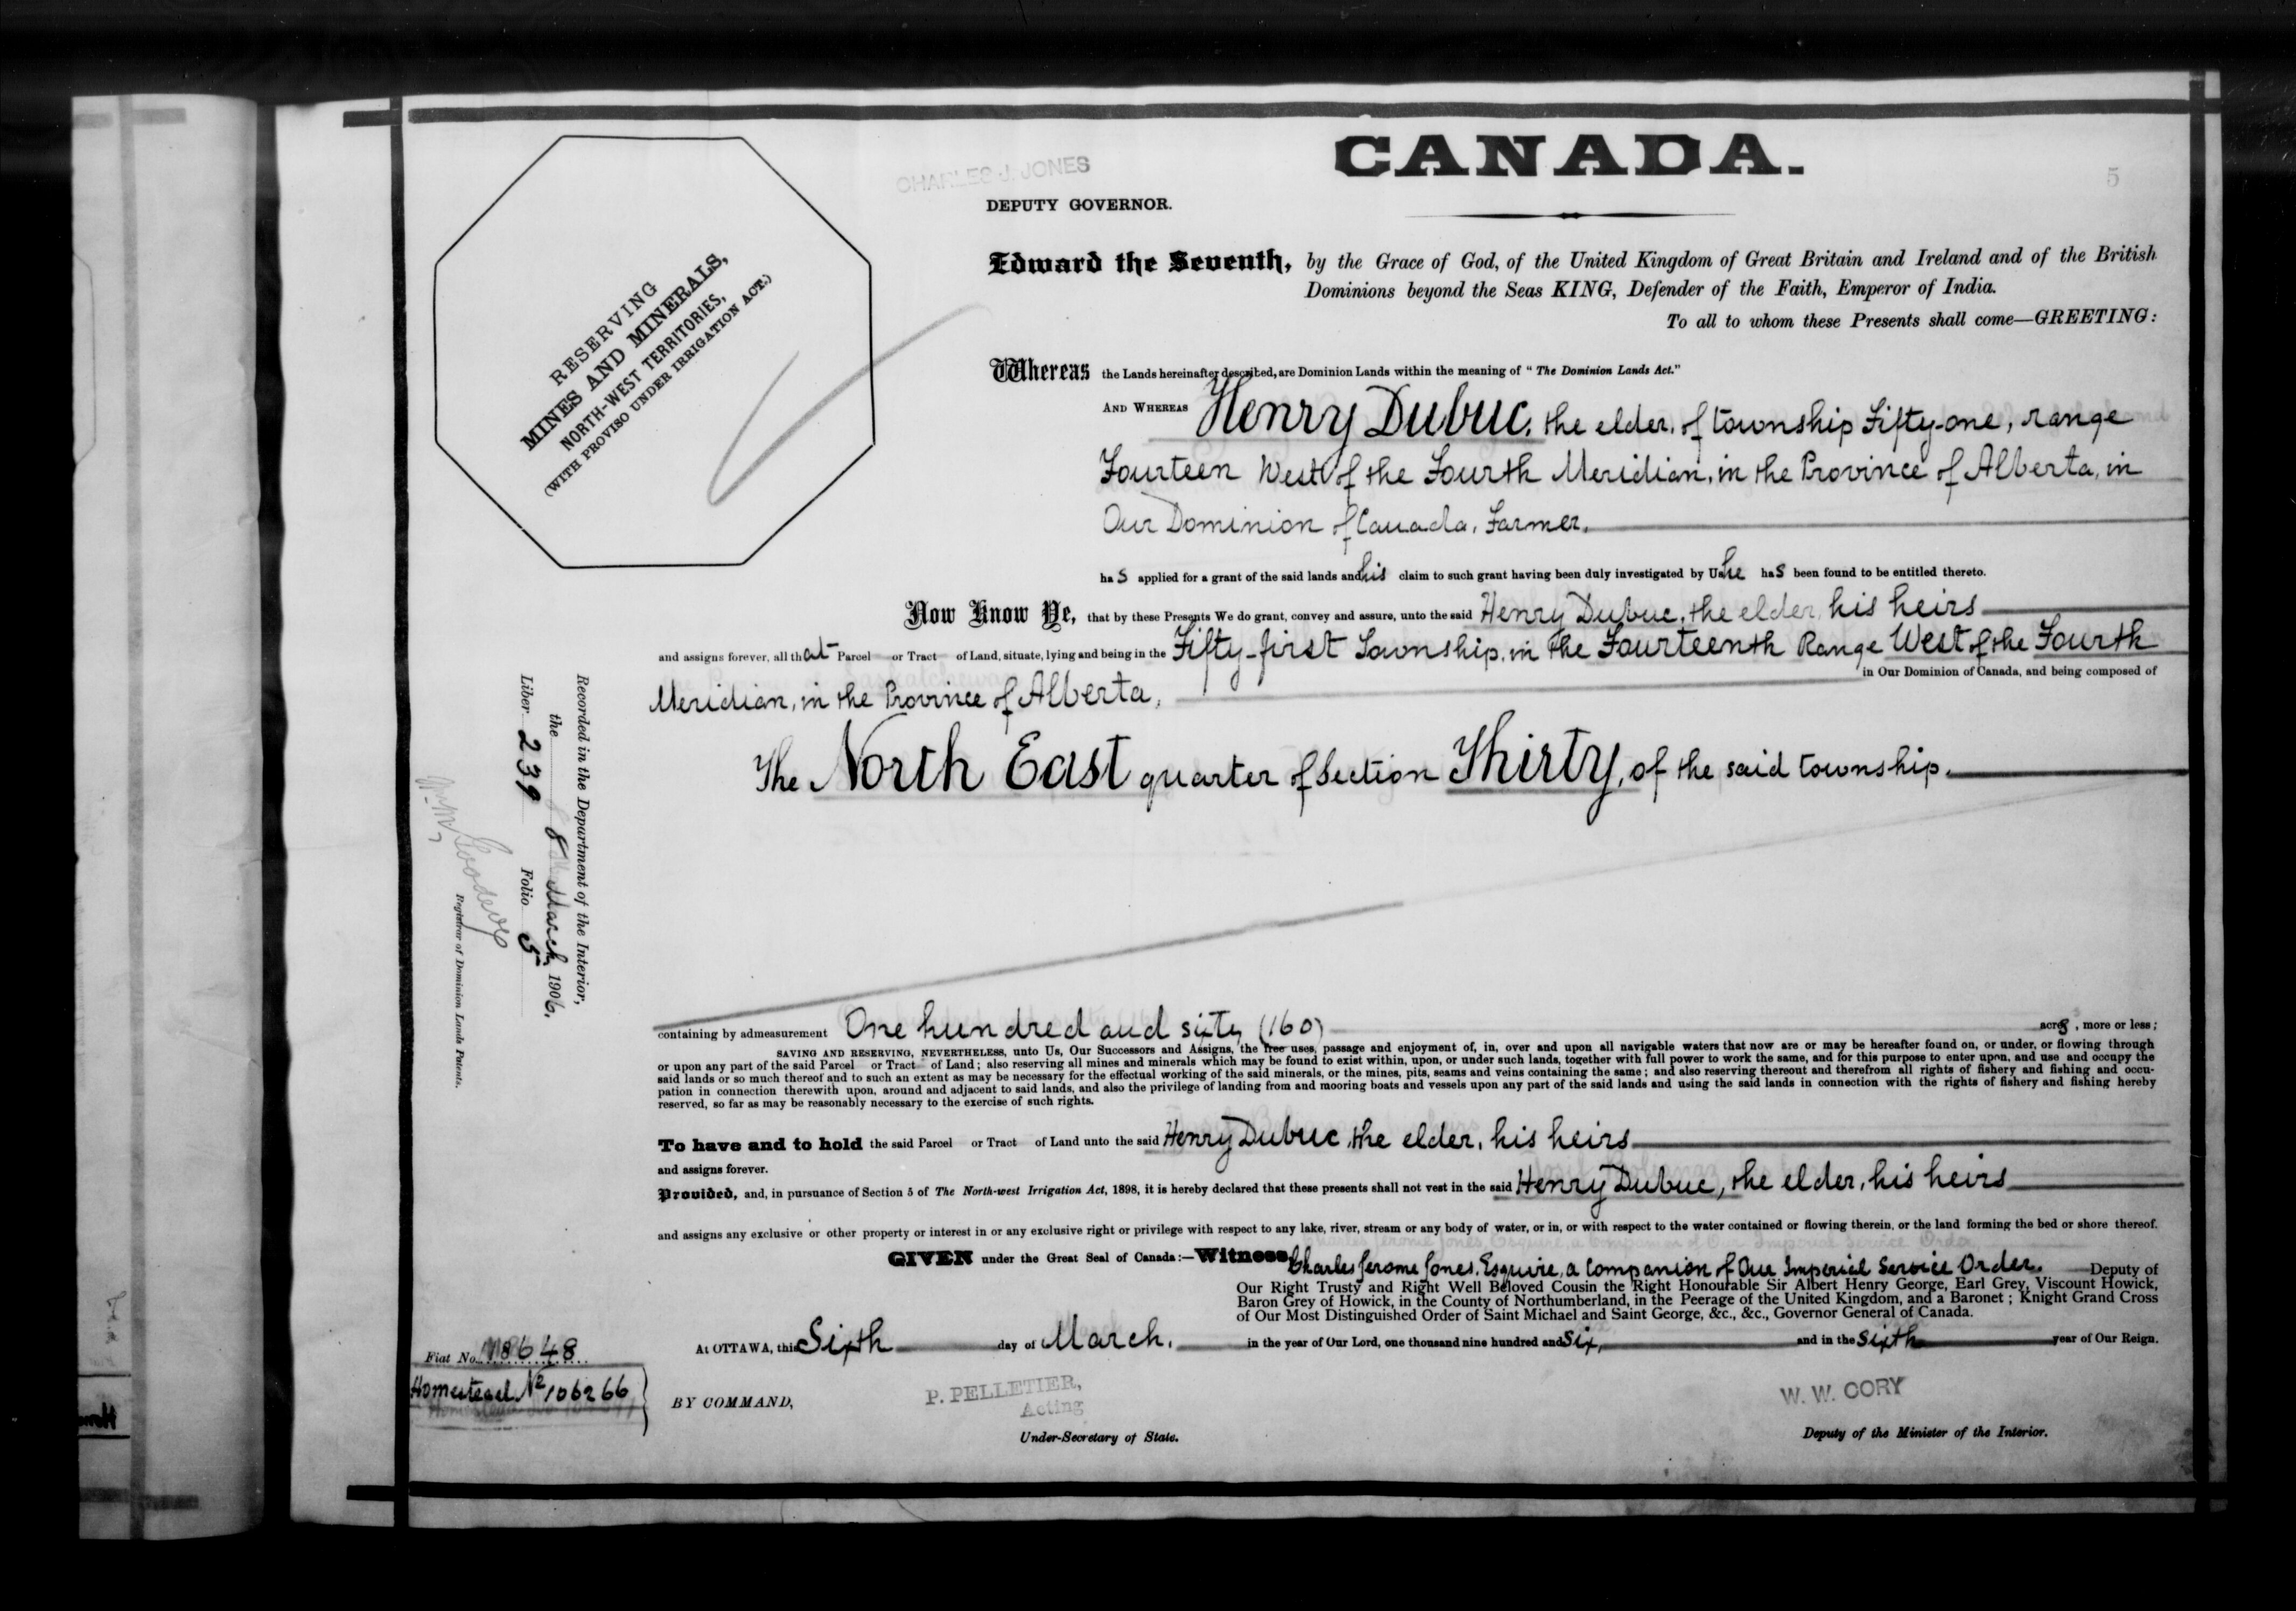 CANADA.
5
CHARLES J. JONES
DEPUTY GOVERNOR.
RESERVING
MINES AND MINERALS,
NORTH-WEST TERRITORIES,
(WITH PROVISO UNDER IRRIGATION ACT.)
Edward the Seventh, by the Grace of God, of the United Kingdom of Great Britain and Ireland and of the British
Dominions beyond the Seas KING, Defender of the Faith, Emperor of India.
To all to whom these Presents shall come—GREETING:
Whereas the Lands hereinafter described, are Dominion Lands within the meaning of "The Dominion Lands Act."
AND WHEREAS Henry Dubuc, the elder, of township Fifty-one, range
Fourteen West of the Fourth Meridian, in the Province of Alberta, in
Our Dominion of Canada, Farmer,
has applied for a grant of the said lands and his claim to such grant having been duly investigated by Us he has been found to be entitled thereto.
Now Know Ye, that by these Presents We do grant, convey and assure, unto the said Henry Dubuc, the elder, his heirs
and assigns forever, all that Parcel or Tract of Land, situate, lying and being in the Fifty-first Township, in the Fourteenth Range West of the Fourth
Meridian, in the Province of Alberta, in Our Dominion of Canada, and being composed of
The North East quarter of Section Thirty, of the said township.
Recorded in the Department of the Interior,
the 8th March, 1906.
Liber 239 Folio 5
Registrar of Dominion Lands Patents.
containing by admeasurement One hundred and sixty (160) acres, more or less;
SAVING AND RESERVING, NEVERTHELESS, unto Us, Our Successors and Assigns, the free uses, passage and enjoyment of, in, over and upon all navigable waters that now are or may be hereafter found on, or under, or flowing through
or upon any part of the said Parcel or Tract of Land; also reserving all mines and minerals which may be found to exist within, upon, or under such lands, together with full power to work the same, and for this purpose to enter upon, and use and occupy the
said lands or so much thereof and to such an extent as may be necessary for the effectual working of the said minerals, or the mines, pits, seams and veins containing the same; and also reserving thereout and therefrom all rights of fishery and fishing and occu-
pation in connection therewith upon, around and adjacent to said lands, and also the privilege of landing from and mooring boats and vessels upon any part of the said lands and using the said lands in connection with the rights of fishery and fishing hereby
reserved, so far as may be reasonably necessary to the exercise of such rights.
To have and to hold the said Parcel or Tract of Land unto the said Henry Dubuc, the elder, his heirs
and assigns forever.
Provided, and, in pursuance of Section 5 of The North-west Irrigation Act, 1898, it is hereby declared that these presents shall not vest in the said Henry Dubuc, the elder, his heirs
and assigns any exclusive or other property or interest in or any exclusive right or privilege with respect to any lake, river, stream or any body of water, or in, or with respect to the water contained or flowing therein, or the land forming the bed or shore thereof.
GIVEN under the Great Seal of Canada:—Witness Charles Jerome Jones, Esquire, a Companion of Our Imperial Service Order. Deputy of
Our Right Trusty and Right Well Beloved Cousin the Right Honourable Sir Albert Henry George, Earl Grey, Viscount Howick,
Baron Grey of Howick, in the County of Northumberland, in the Peerage of the United Kingdom, and a Baronet; Knight Grand Cross
of Our Most Distinguished Order of Saint Michael and Saint George, &c., &c., Governor General of Canada.
At OTTAWA, this Sixth day of March, in the year of Our Lord, one thousand nine hundred and six, and in the sixth year of Our Reign.
Fiat No.
Homestead No 106266
BY COMMAND,
P. PELLETIER,
Acting
Under-Secretary of State.
W. W. CORY
Deputy of the Minister of the Interior.